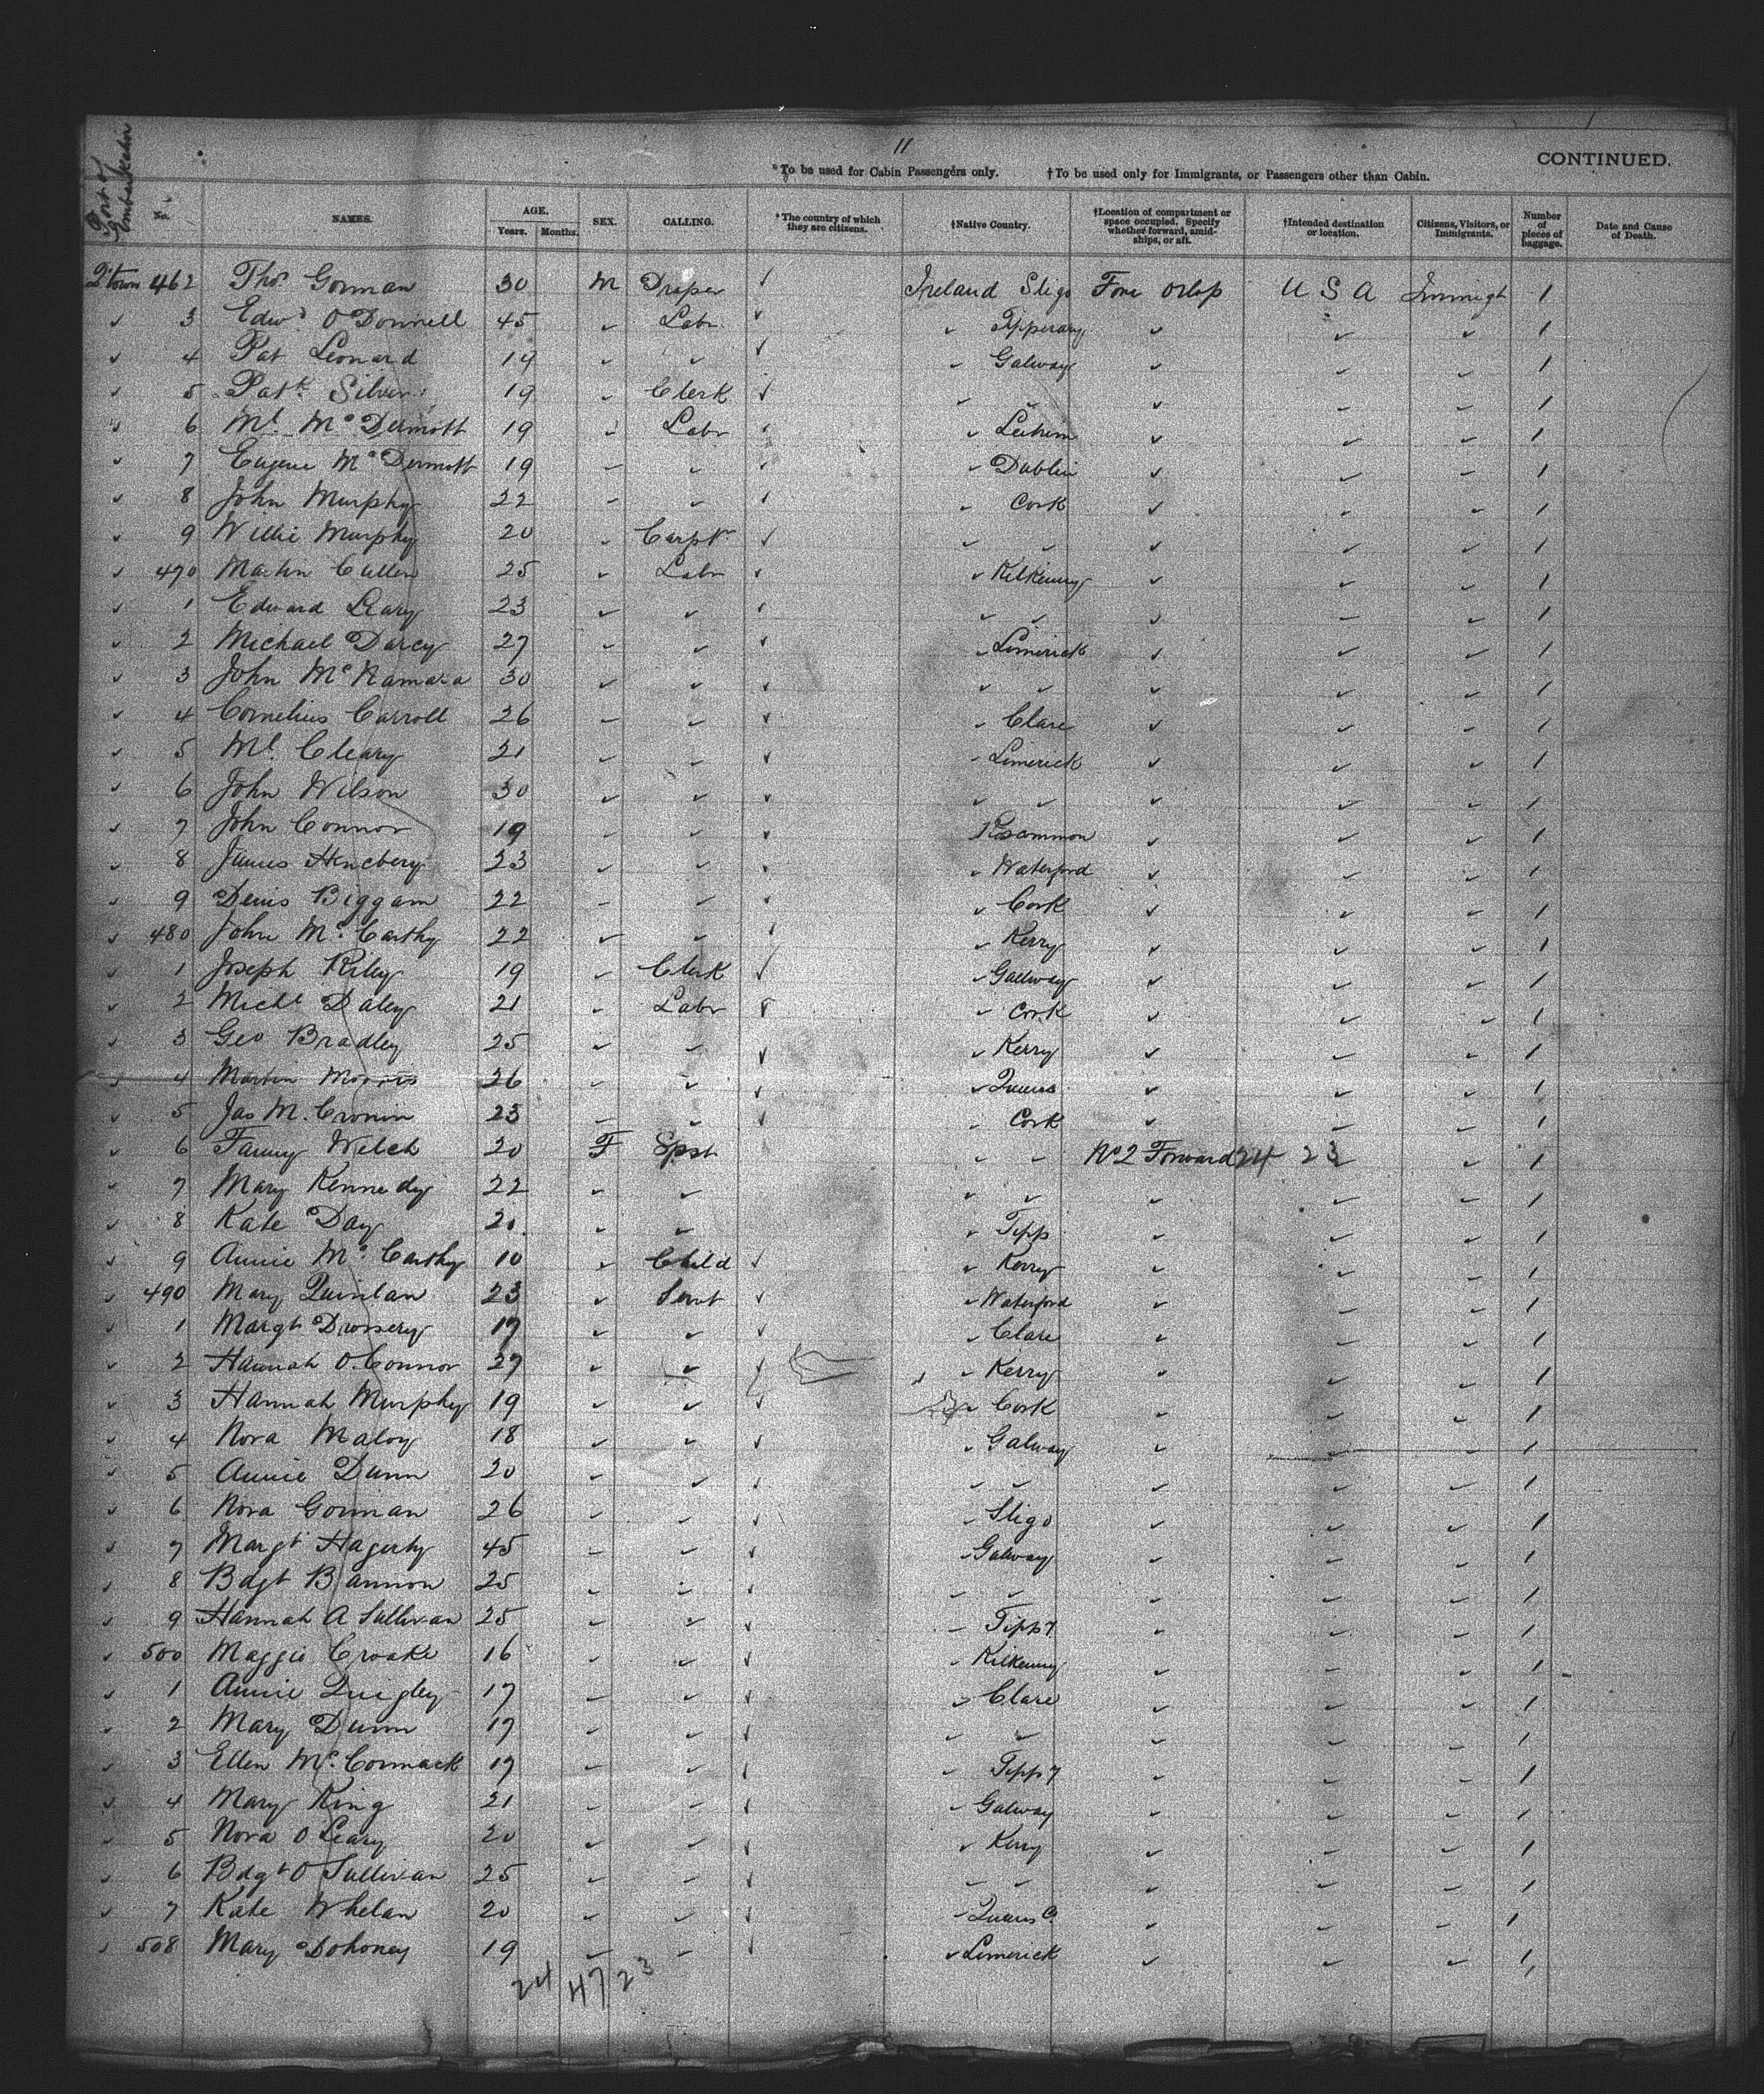 11
CONTINUED.
*To be used for Cabin Passengers only. †To be used only for Immigrants, or Passengers other than Cabin.
Port of Embarkation No. NAMES. AGE. Years. Months. SEX. CALLING. *The country of which they are citizens. †Native Country. †Location of compartment or space occupied. Specify whether forward, amidships, or aft. †Intended destination or location. Citizens, Visitors, or Immigrants. Number of pieces of baggage. Date and Cause of Death.
Q'town 462 Thos. Gorman 30 M Draper ✓ Ireland Sligo Fore Orlop U S A Immigt 1
✓ 3 Edwd O'Donnell 45 ✓ Labr ✓ ✓ Tipperary ✓ ✓ ✓ 1
✓ 4 Pat Leonard 19 ✓ ✓ ✓ ✓ Galway ✓ ✓ ✓ 1
✓ 5 Patk. Silver 19 ✓ Clerk ✓ ✓ ✓ ✓ ✓ ✓ 1
✓ 6 Ml. McDermott 19 ✓ Labr ✓ ✓ Leitrim ✓ ✓ ✓ 1
✓ 7 Eugene McDermott 19 ✓ ✓ ✓ ✓ Dublin ✓ ✓ ✓ 1
✓ 8 John Murphy 22 ✓ ✓ ✓ ✓ Cork ✓ ✓ ✓ 1
✓ 9 Willie Murphy 20 ✓ Carptr ✓ ✓ ✓ ✓ ✓ ✓ 1
✓ 470 Martin Cullen 25 ✓ Labr ✓ ✓ Kilkenny ✓ ✓ ✓ 1
✓ 1 Edward Leary 23 ✓ ✓ ✓ ✓ ✓ ✓ ✓ ✓ 1
✓ 2 Michael Darcy 27 ✓ ✓ ✓ ✓ Limerick ✓ ✓ ✓ 1
✓ 3 John McNamara 30 ✓ ✓ ✓ ✓ ✓ ✓ ✓ ✓ 1
✓ 4 Cornelius Carroll 26 ✓ ✓ ✓ ✓ Clare ✓ ✓ ✓ 1
✓ 5 Ml. Cleary 21 ✓ ✓ ✓ ✓ Limerick ✓ ✓ ✓ 1
✓ 6 John Wilson 30 ✓ ✓ ✓ ✓ ✓ ✓ ✓ ✓ 1
✓ 7 John Connor 19 ✓ ✓ ✓ ✓ Roscommon ✓ ✓ ✓ 1
✓ 8 James Hencbery 23 ✓ ✓ ✓ ✓ Waterford ✓ ✓ ✓ 1
✓ 9 Denis Biggam 22 ✓ ✓ ✓ ✓ Cork ✓ ✓ ✓ 1
✓ 480 John McCarthy 22 ✓ ✓ ✓ ✓ Kerry ✓ ✓ ✓ 1
✓ 1 Joseph Riley 19 ✓ Clerk ✓ ✓ Gallway ✓ ✓ ✓ 1
✓ 2 Michl Daley 21 ✓ Labr ✓ Cork ✓ ✓ ✓ 1
✓ 3 Geo Bradley 25 ✓ ✓ ✓ ✓ Kerry ✓ ✓ ✓ 1
✓ 4 Martin Morris 26 ✓ ✓ ✓ ✓ Queens ✓ ✓ ✓ 1
✓ 5 Jas M. Cronin 23 ✓ ✓ ✓ ✓ Cork ✓ ✓ ✓ 1
✓ 6 Fanny Welch 20 F Spst ✓ ✓ No 2 Forward 24 23 ✓ 1
✓ 7 Mary Kennedy 22 ✓ ✓ ✓ ✓ ✓ ✓ ✓ 1
✓ 8 Kate Day 21 ✓ ✓ ✓ Tipp ✓ ✓ ✓ 1
✓ 9 Annie McCarthy 10 ✓ Child ✓ ✓ Kerry ✓ ✓ ✓ 1
✓ 490 Mary Quinlan 23 ✓ Servt ✓ ✓ Waterford ✓ ✓ ✓ 1
✓ 1 Margt 17 ✓ ✓ ✓ ✓ Clare ✓ ✓ ✓ 1
✓ 2 Hannah O'Connor 27 ✓ ✓ ✓ ✓ Kerry ✓ ✓ ✓ 1
✓ 3 Hannah Murphy 19 ✓ ✓ ✓ ✓ Cork ✓ ✓ ✓ 1
✓ 4 Nora Maloy 18 ✓ ✓ ✓ ✓ Galway ✓ ✓ ✓ 1
✓ 5 Annie Dunn 20 ✓ ✓ ✓ ✓ ✓ ✓ ✓ ✓ 1
✓ 6 Nora Gorman 26 ✓ ✓ ✓ ✓ Sligo ✓ ✓ ✓ 1
✓ 7 Margt Hagerty 45 ✓ ✓ ✓ ✓ Galway ✓ ✓ ✓ 1
✓ 8 Bdgt Bannon 25 ✓ ✓ ✓ ✓ ✓ ✓ ✓ ✓ 1
✓ 9 Hannah A Sullivan 25 ✓ ✓ ✓ ✓ Tippy ✓ ✓ ✓ 1
✓ 500 Maggie Croake 16 ✓ ✓ ✓ ✓ Kilkenny ✓ ✓ ✓ 1
✓ 1 Annie Quigley 17 ✓ ✓ ✓ ✓ Clare ✓ ✓ ✓ 1
✓ 2 Mary Dunn 17 ✓ ✓ ✓ ✓ ✓ ✓ ✓ ✓ 1
✓ 3 Ellen McCormack 17 ✓ ✓ ✓ ✓ Tippy ✓ ✓ ✓ 1
✓ 4 Mary King 21 ✓ ✓ ✓ ✓ Galway ✓ ✓ ✓ 1
✓ 5 Nora O'Leary 20 ✓ ✓ ✓ ✓ Kerry ✓ ✓ ✓ 1
✓ 6 Bdgt O'Sullivan 25 ✓ ✓ ✓ ✓ ✓ ✓ ✓ ✓ 1
✓ 7 Kate Whelan 20 ✓ ✓ ✓ ✓ Queens C. ✓ ✓ ✓ 1
✓ 508 Mary Dohoney 19 ✓ ✓ ✓ ✓ Limerick ✓ ✓ ✓ 1
24 47 23